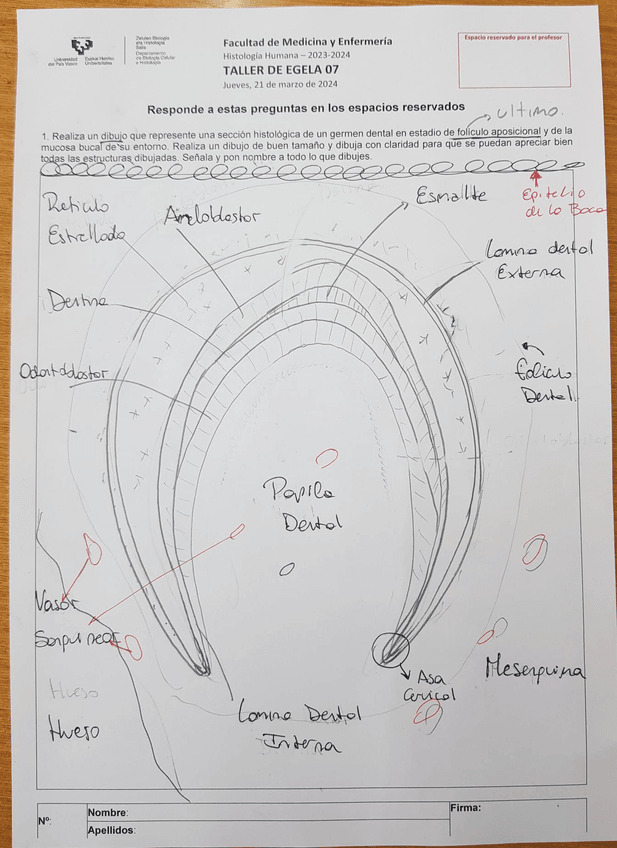 Universidad
del País Vasco
Euskal Herriko
Unibertsitatea
Zelulen Biologia
eta Histologia
Saila
Departamento
de Biología Celular
e Histología
Facultad de Medicina y Enfermería
Histología Humana – 2023-2024
TALLER DE EGELA 07
Jueves, 21 de marzo de 2024
Espacio reservado para el profesor
Responde a estas preguntas en los espacios reservados
ultimo.
1. Realiza un dibujo que represente una sección histológica de un germen dental en estadio de folículo aposicional y de la
mucosa bucal de su entorno. Realiza un dibujo de buen tamaño y dibuja con claridad para que se puedan apreciar bien
todas las estructuras dibujadas. Señala y pon nombre a todo lo que dibujes.
Epitelio
de la Boca
Reticulo
Estrellado
Ameloblastos
Esmalte
Lamina dental
Externa
Dentina
Odontoblastos
Foliculo
Dental
Papila
Dental
Vasos
Sanguineos
Hueso
Hueso
Asa
Cervical
Mesenquima
Lamina Dental
Interna
Nº:
Nombre:
Apellidos:
Firma: